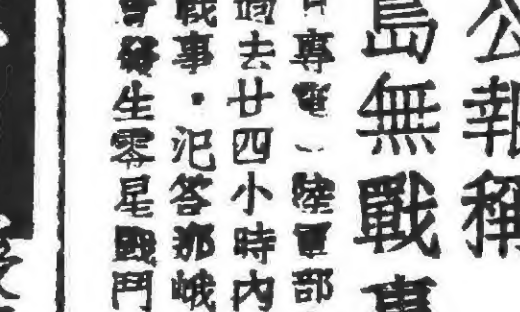 公報稱
島無戰事
專電︵陸軍部
過去廿四小時內
戰事・汜答那峨
曾發生零星戰鬥